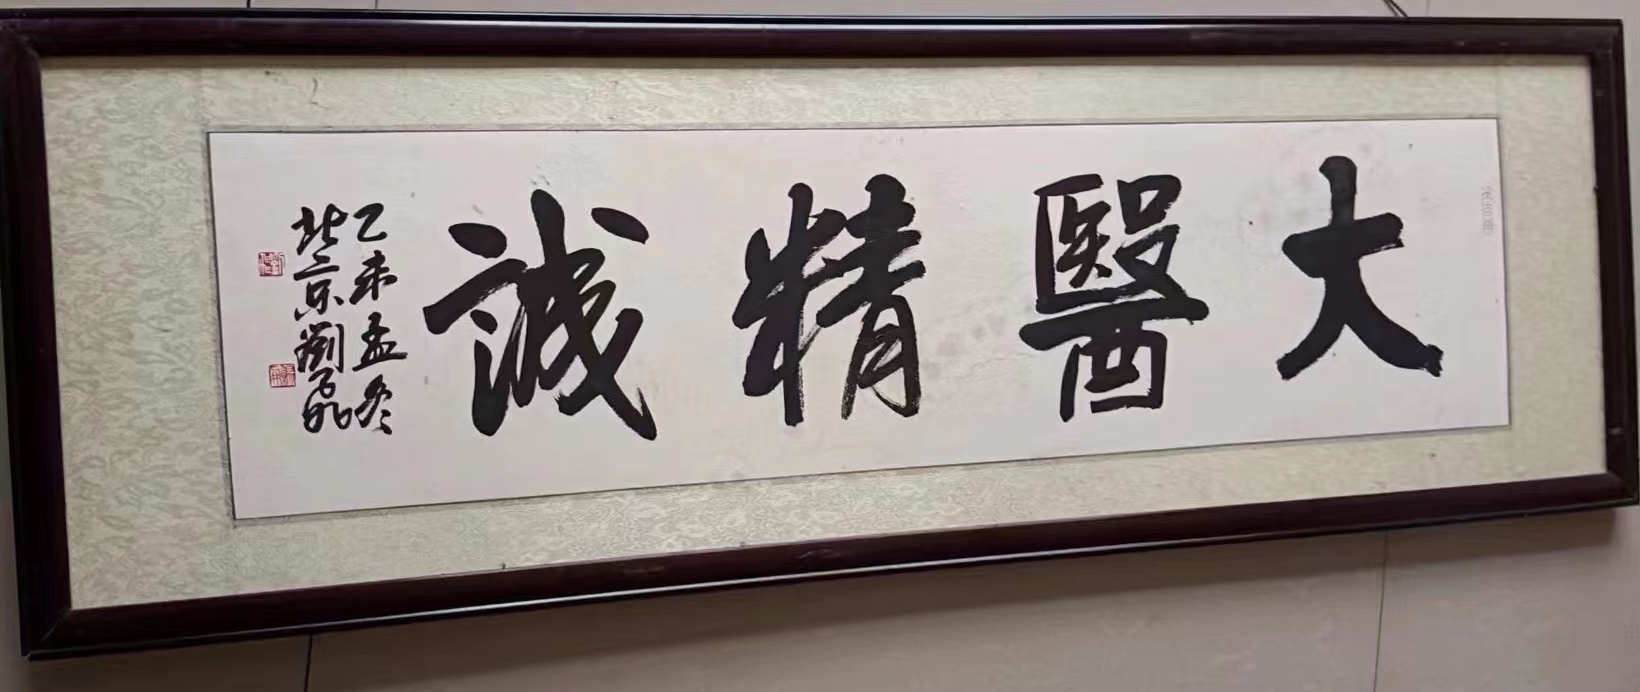 大醫精誠
乙未孟冬
北京劉